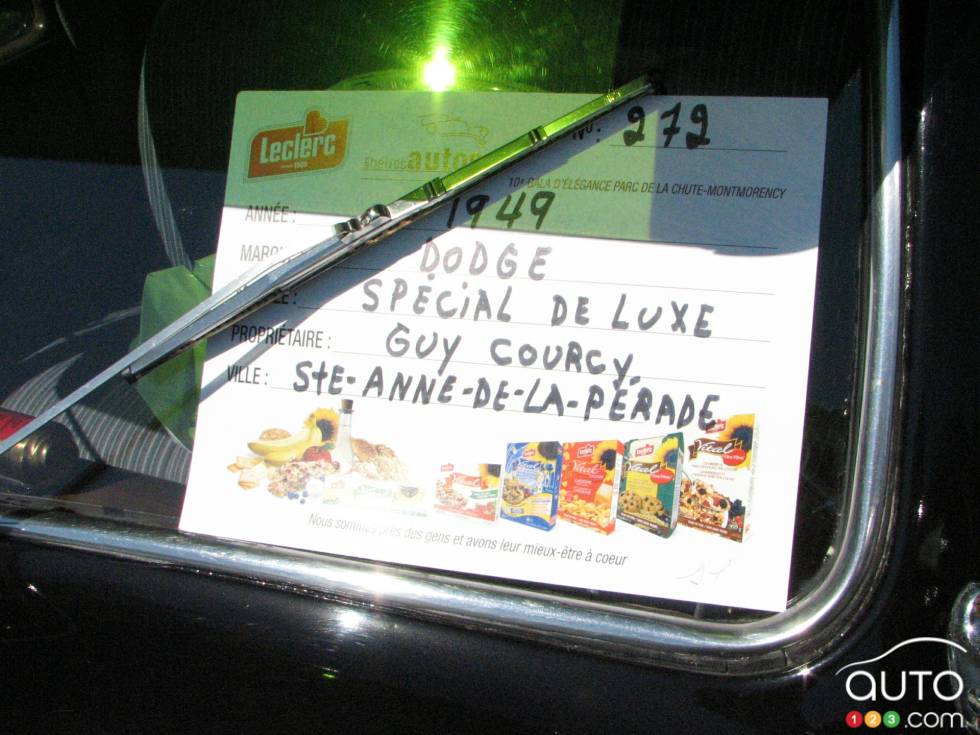 Leclerc
No. 272
10e GALA D'ÉLÉGANCE PARC DE LA CHUTE-MONTMORENCY
ANNÉE : 1949
DODGE
SPÉCIAL DE LUXE
PROPRIÉTAIRE : GUY COURCY.
VILLE : STE-ANNE-DE-LA-PÉRADE
Leclerc Vital
Nous sommes près des gens et avons leur mieux-être à coeur
AUTO
123.com